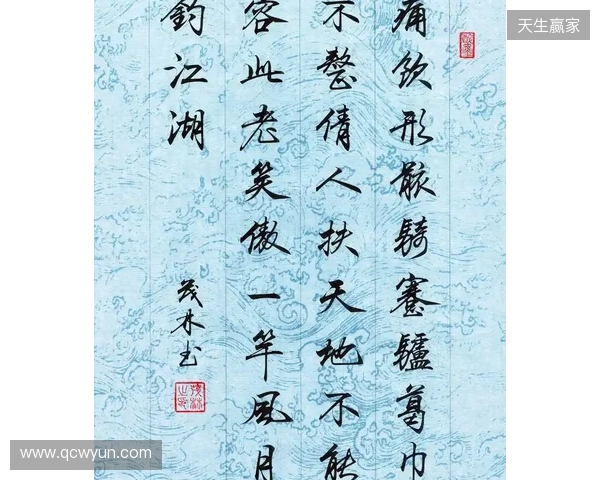 痛饮形骸骑蹇驴葛巾
不整倩人扶天地不能
容此老笑傲一竿风月
钓江湖
茂林书
天生赢家
www.qcwyun.com